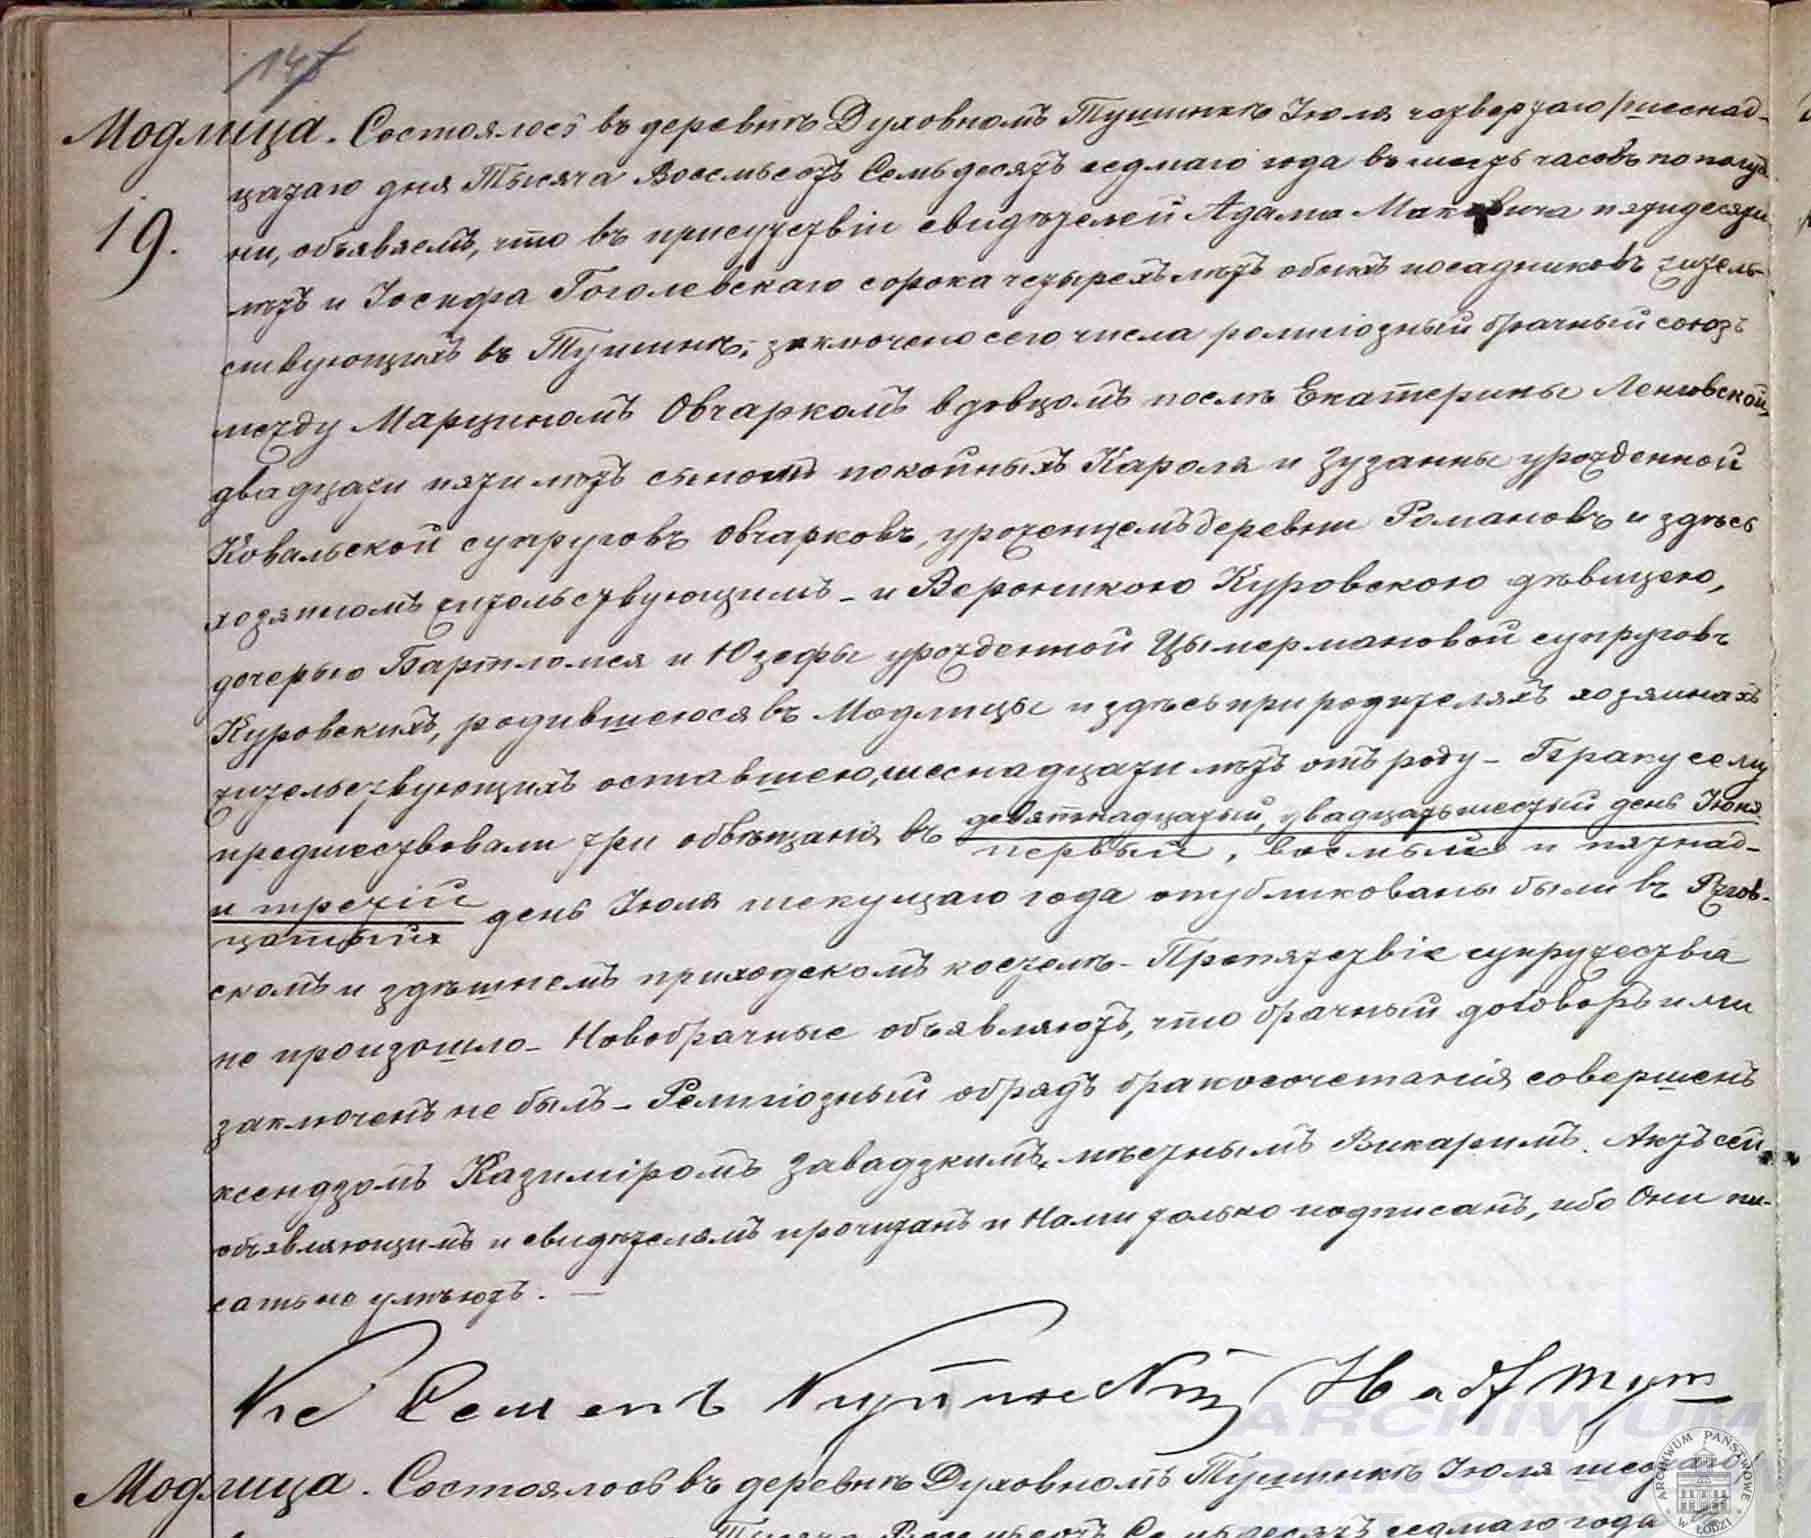 147
Модлица. Состоялось въ деревнѣ Духовномъ Тушинкѣ Іюля четвертаго/шеснад-
цатаго дня Тысяча Восемьсотъ Семьдесятъ седмаго года въ часовъ по полуд-
19. ни, объявяемъ, что въ присутствіи свидѣтелей Адама пятидесяти
лѣтъ и Іосифа Гоголевскаго сорока четырехъ лѣтъ обоихъ посадниковъ житель-
ствующихъ въ Тушинѣ, заключено сего числа религіозный брачный союзъ
между Марциномъ Овчаркомъ вдовцомъ послѣ Екатерины Ленговской,
двадцати пяти лѣтъ сыномъ покойныхъ Кароля и Зузанны урожденной
Ковальской супруговъ Овчарковъ, уроженцемъ деревни Романовъ и здѣсь
хозяиномъ жительствующимъ - и Вероникою Куровскою дѣвицею,
дочерью Бартломея и Юзефы урожденной Цымермановой супруговъ
Куровскихъ, родившеюся въ Модлицы и здѣсь при родителяхъ хозяинахъ
жительствующихъ оставшею, шеснадцати лѣтъ отъ роду - Браку сему
предшествовали три объвѣщанія въ девятнадцатый, двадцать шестый день Іюня
первый, восьмый и пятнад-
и третій
цатый день Іюля текущаго года опубликованы были въ Ргов-
скомъ и здѣшнемъ приходскомъ костелѣ - Препятствіе супружества
не произошло - Новобрачные объявляютъ, что брачный договоръ ими
заключенъ не былъ - Религіозный обрядъ бракосочетанія совершенъ
ксендзомъ Казиміромъ Завадзкимъ, мѣстнымъ Викаримъ. Актъ сей
объявляющимъ и свидѣтелямъ прочитанъ и Нами только подписанъ, ибо Они пи-
сать не умѣютъ. —
Модлица. Состоялось въ деревнѣ Духовномъ Тушинкѣ Іюля
Тысяча Восемьсотъ Семьдесятъ седмаго года
ARCHIWUM
PAŃSTWOW
ARCHIWUM PAŃSTWOWE W ŁODZI